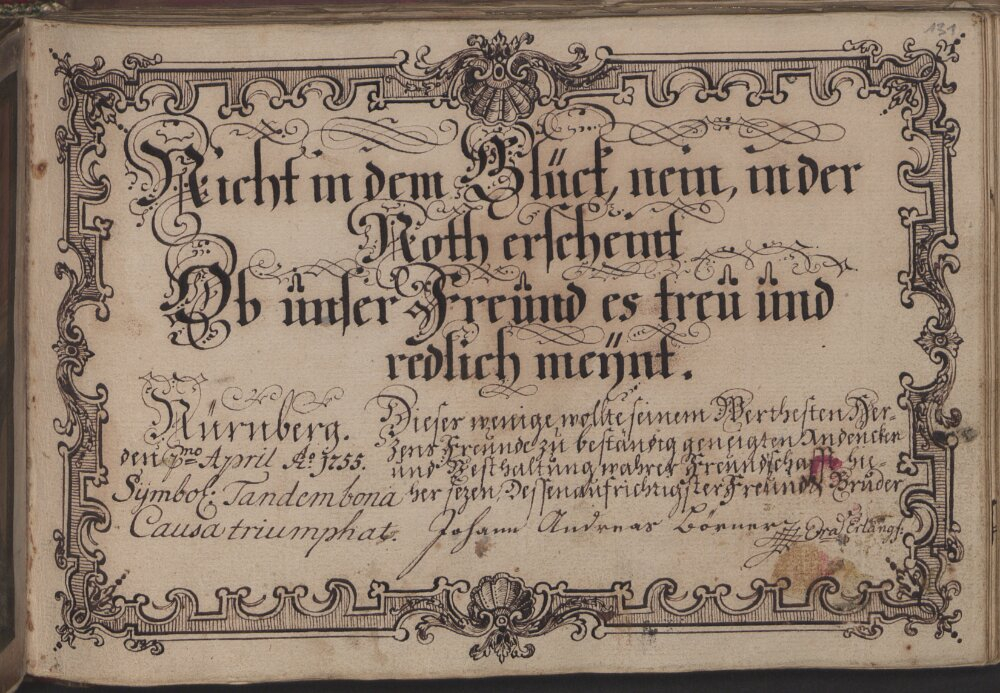 131.
Nicht in dem Glück, nein, in der
Noth erscheint
Ob ünser Freünd es treü ünd
redlich meÿnt.
Nürnberg.
den 7mo April Ao. 1755.
Sÿmbol: Tandem bona
Causa triumphat.
Dieser wenige wollte seinem Werthesten Her-
zens Freunde zu beständig geneigten Andencken
und Vesthaltung wahrer Freundschafft hie-
her sezen, Dessen aufrichtigster Freund u Bruder
Johann Andreas Börner